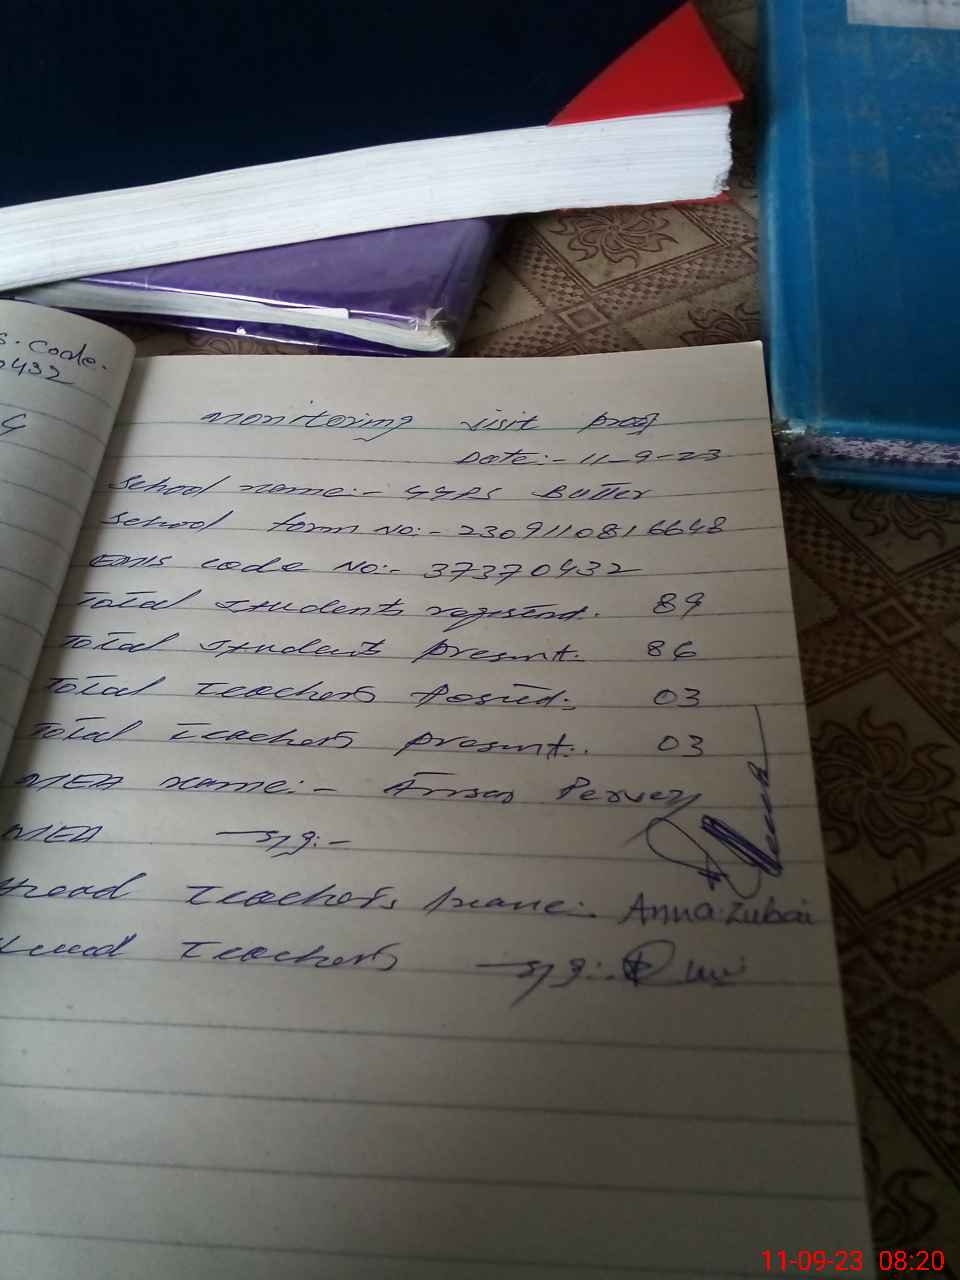 s. code.
0432
Monitoring visit proof
Date:- 11-9-23
School name:- GGPS Butter
School form No:- 2309110816648
EMIS code No:- 37370432
Total students registerd. 89
Total students present: 86
Total Teachers Posted:- 03
Total Teachers present:. 03
MEA name:- Ansar Pervez
MEA sig:-
Head Teachers name:- Anna Zubai
Head Teachers sig:-
11-09-23 08:20